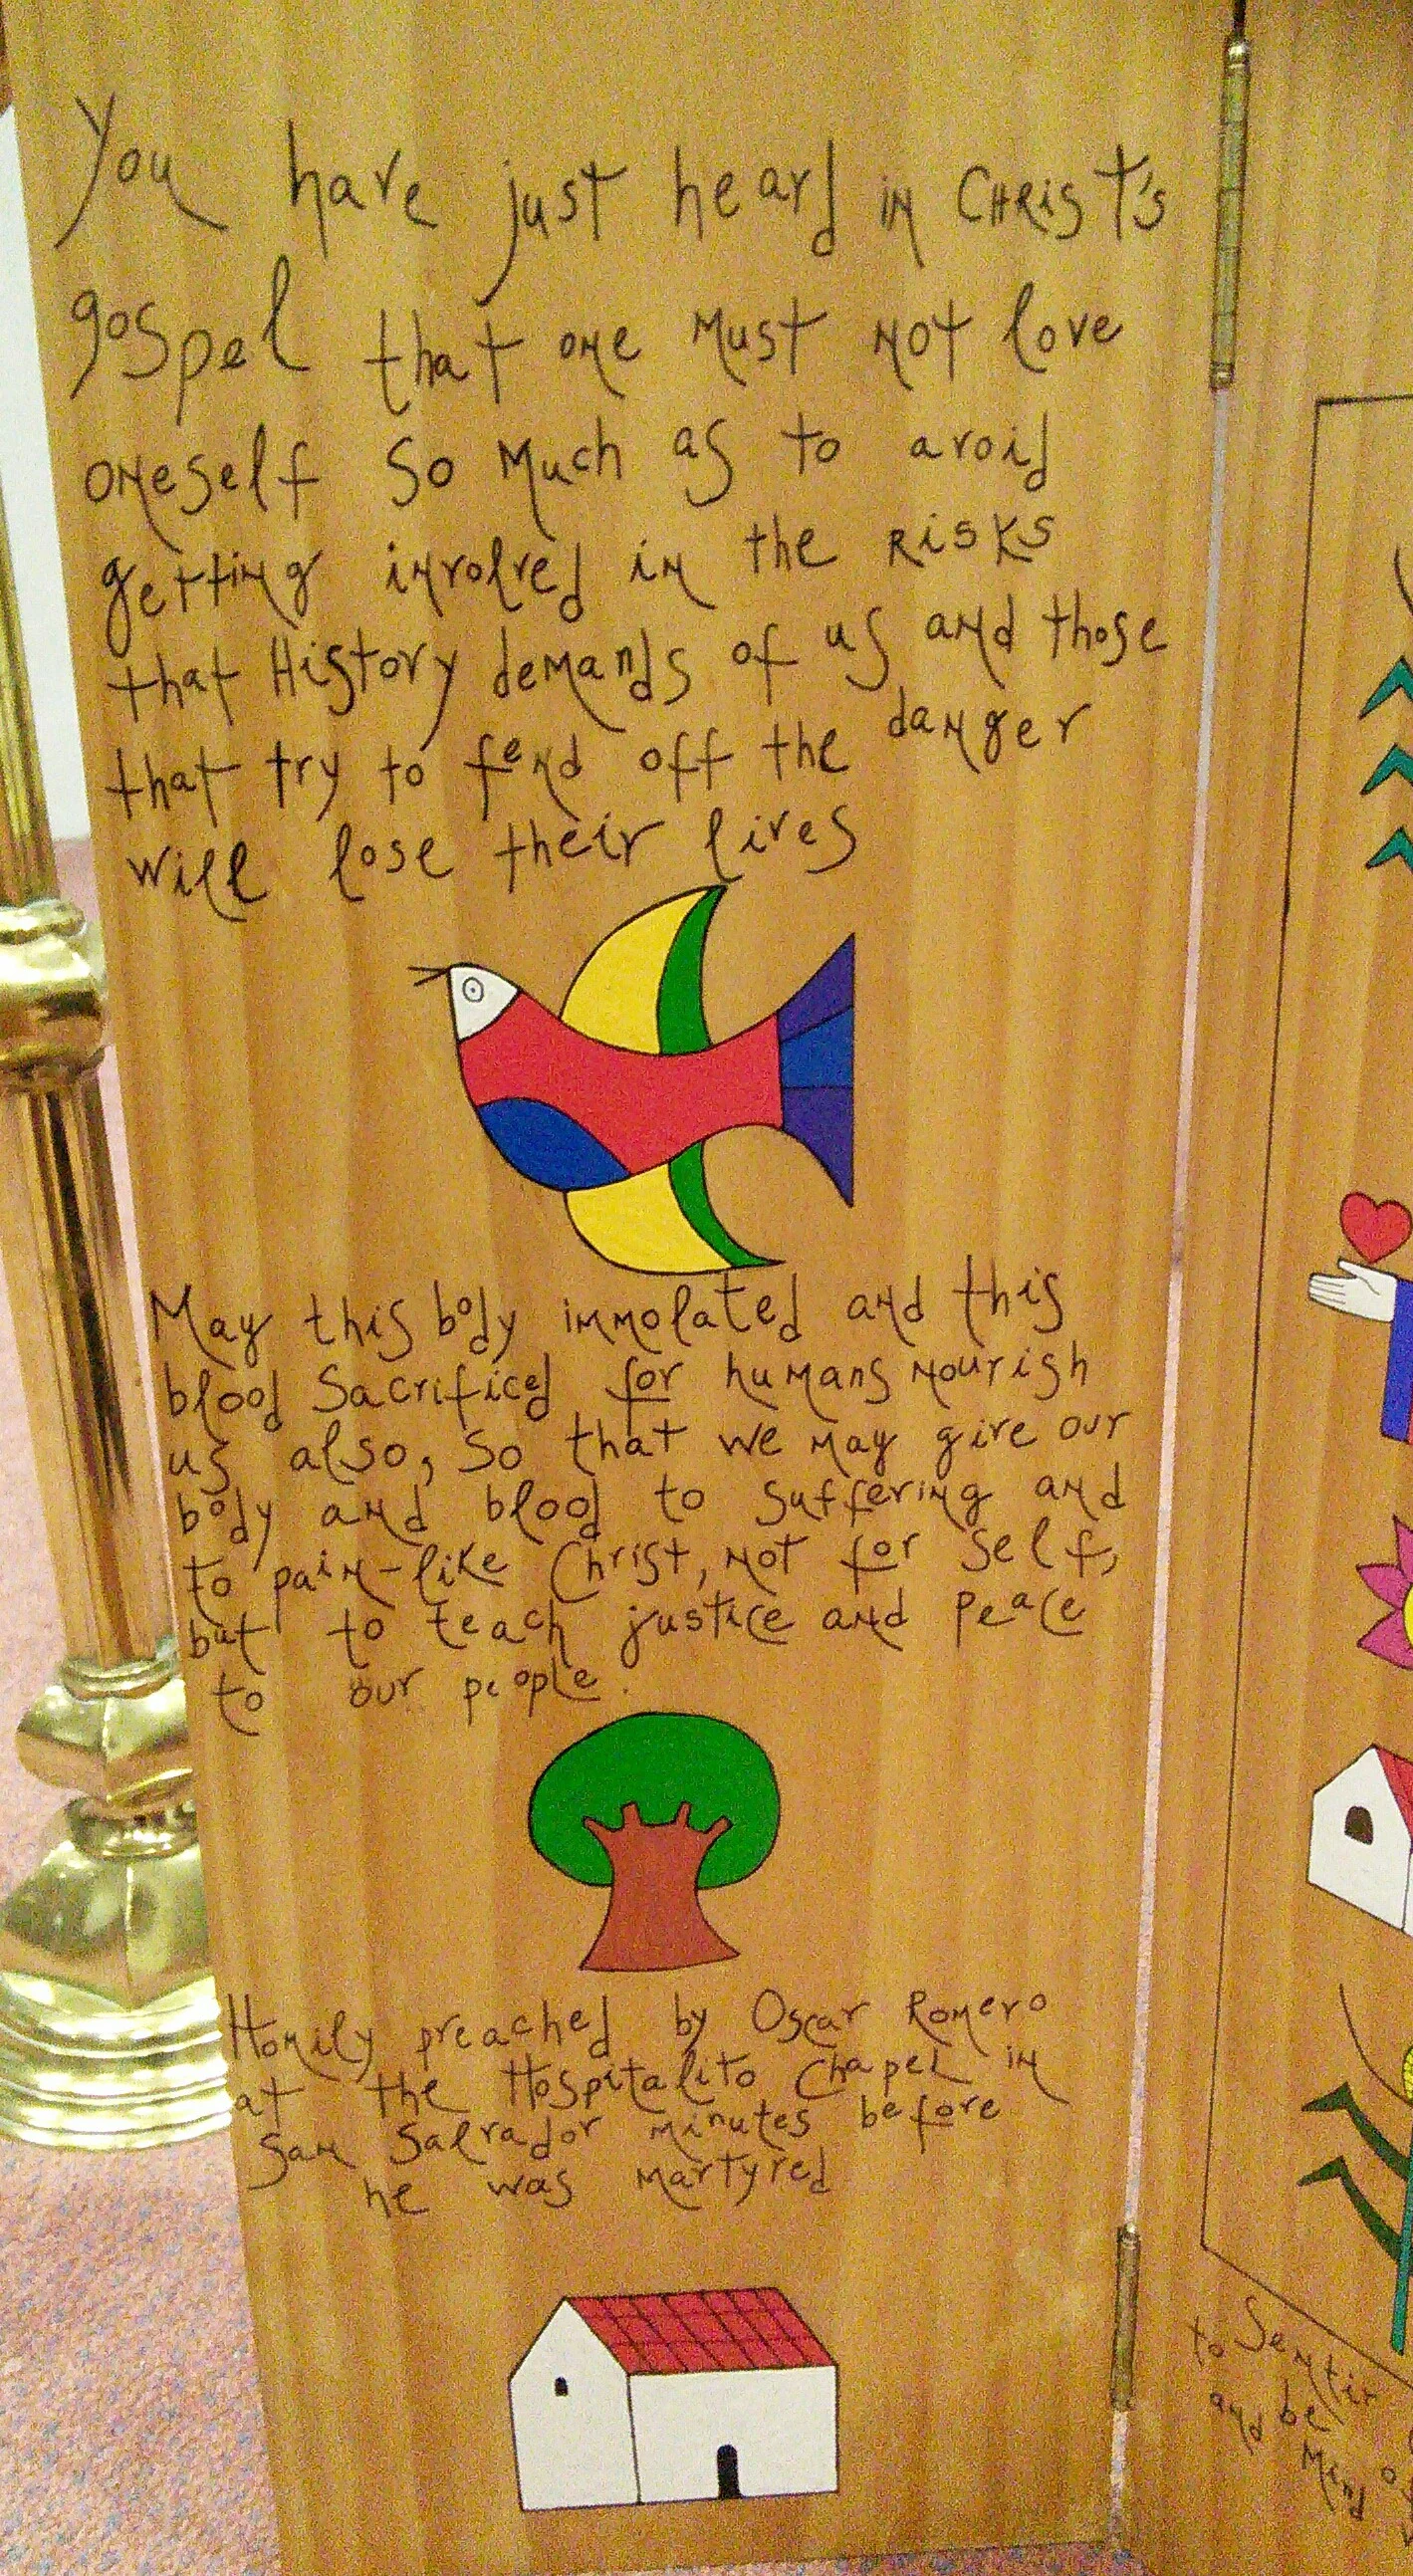 You have just heard in CHRIST's
gospel that one must not love
oneself so much as to avoid
getting involved in the RISKS
that History demands of us and those
that try to fend off the danger
will lose their lives
May this body immolated and this
blood Sacrificed for humans nourish
us also, so that we may give our
body and blood to suffering and
to pain-like Christ, not for self,
but to teach justice and peace
to our people.
Homily preached by Oscar Romero
at the Hospitalito Chapel in
San Salvador minutes before
he was martyred
to Sentir
and be
Mind of